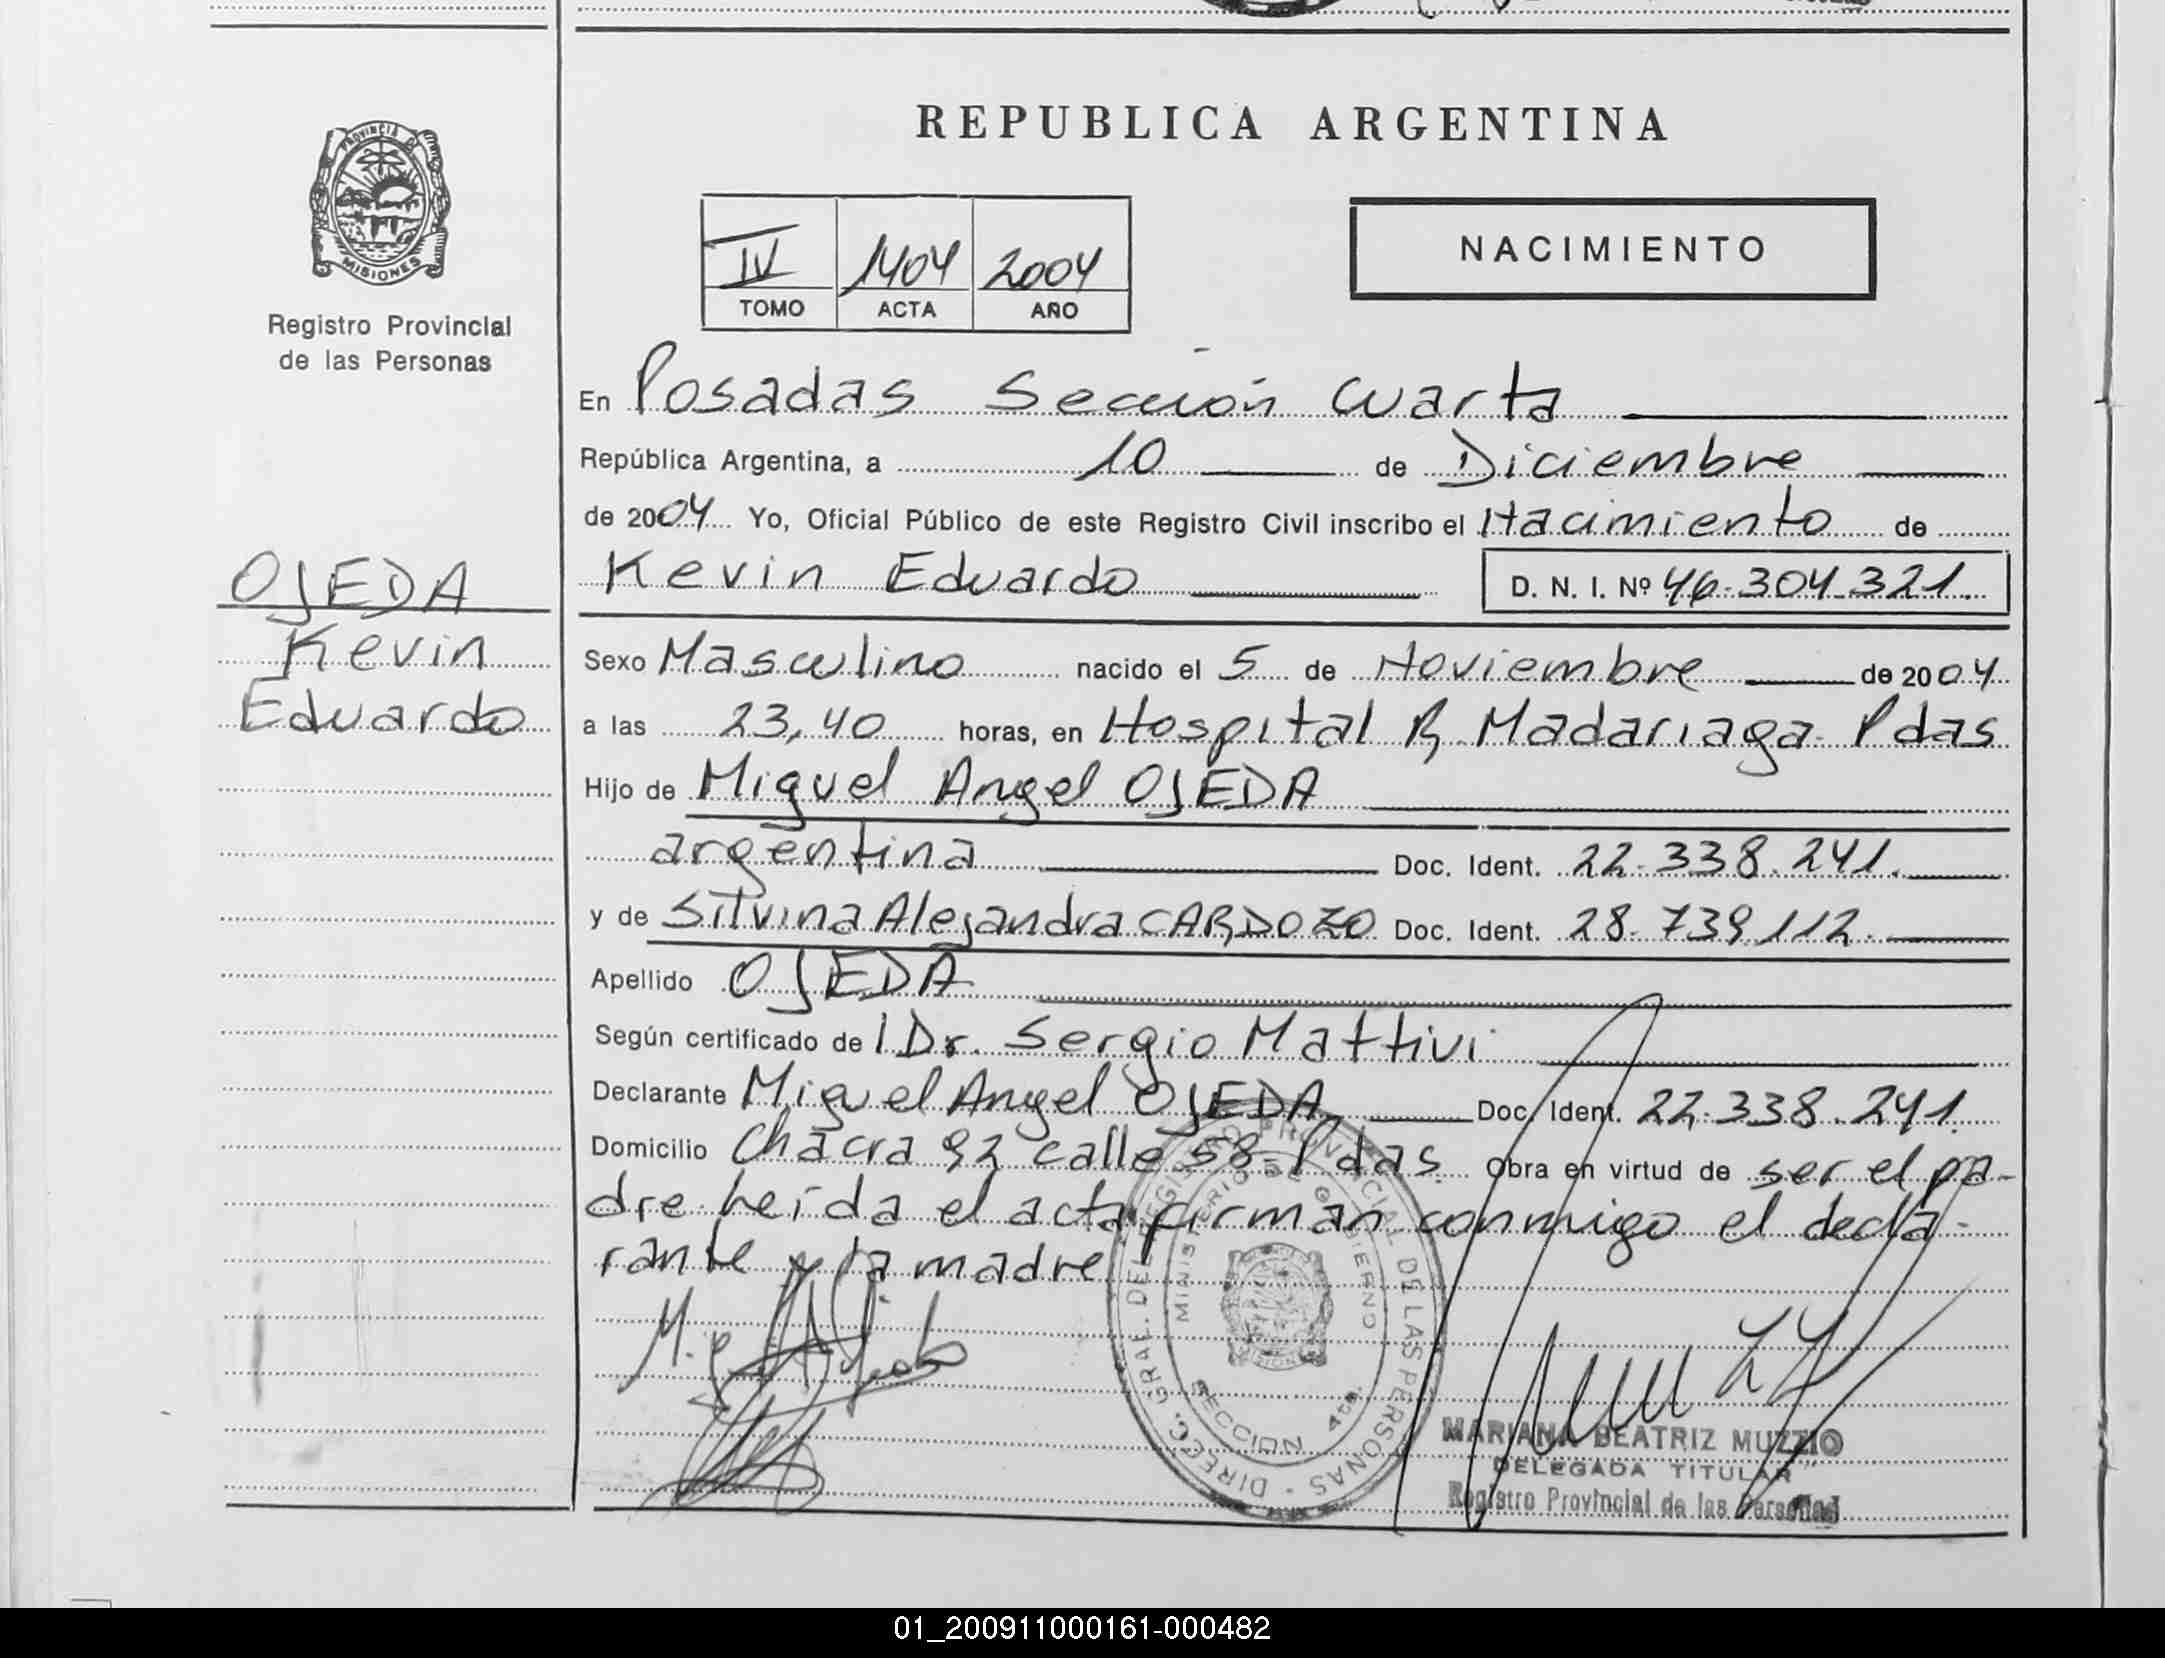 PROVINCIA DE
MISIONES
Registro Provincial
de las Personas
OJEDA
Kevin
Eduardo
REPUBLICA ARGENTINA
IV 1404 2004
TOMO ACTA AÑO
NACIMIENTO
En Posadas Sección Cuarta
República Argentina, a 10 de Diciembre
de 2004 Yo, Oficial Público de este Registro Civil inscribo el Nacimiento de
Kevin Eduardo D. N. I. Nº 46.304.321.
Sexo Masculino nacido el 5 de Noviembre de 2004
a las 23,40 horas, en Hospital R. Madariaga Pdas
Hijo de Miguel Angel OJEDA
argentina Doc. Ident. 22.338.241.
y de Silvina Alejandra CARDOZO Doc. Ident. 28.739.112.
Apellido OJEDA
Según certificado de l Dr. Sergio Mattivi
Declarante Miguel Angel OJEDA Doc. Ident. 22.338.241.
Domicilio Chacra 92 calle 58-Pdas. Obra en virtud de ser el pa-
dre leída el acta firman conmigo el decla-
rante y la madre
DIRECC. GRAL. DEL REGISTRO PROVINCIAL DE LAS PERSONAS
MINISTERIO DE GOBIERNO
SECCION 4ta.
MARIANA BEATRIZ MUZZIO
DELEGADA TITULAR
Registro Provincial de las Personas
01_200911000161-000482